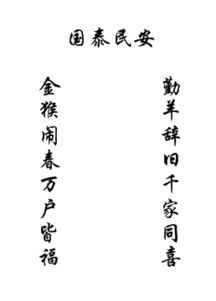 国泰民安
勤羊辞旧千家同喜
金猴闹春万户皆福